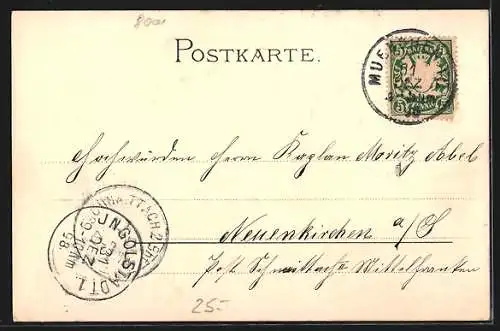 8001
POSTKARTE.
MUENCHEN
31
DEZ
Hochwürden Herrn Kaplan Moritz Abel
Neuenkirchen a/S
Post Schnaittach Mittelfranken
SCHNAITTACH
INGOLSTADT 1.
31
DEZ
98
25.-